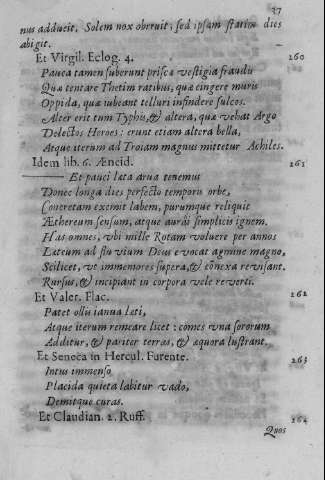 27
nus adducit, Solem nox obruit, sed ipsam statim dies
abigit.
Et Virgil. Eclog. 4. 260
Pauca tamen suberunt priscæ vestigia fraudis
Quæ tentare Thetim ratibus, quæ cingere muris
Oppida, quæ iubeant telluri infindere sulcos.
Alter erit tum Typhis, & altera, quæ vehat Argo
Delectos Heroes: erunt etiam altera bella,
Atque iterum ad Troiam magnus mittetur Achiles.
Idem lib. 6. Æneid. 261
Et pauci lata arua tenemus
Donec longa dies perfecto temporis orbe,
Concretam exemit labem, purumque reliquit
Æthereum sensum, atque aurai simplicis ignem.
Has omnes, vbi mille Rotam voluere per annos
Lateum ad fluuium Deus euocat agmine magno,
Scilicet, vt immemores supera, & cõnexa reuisant.
Rursus, & incipiant in corpora velle reuerti.
Et Valer. Flac. 262
Patet ollis ianua leti,
Atque iterum remeare licet: comes vna sororum
Additur, & pariter terras, & æquora lustrant.
Et Seneca in Hercul. Furente. 263
Intus immenso
Placida quieta labitur vado,
Demitque curas.
Et Claudian. 2. Ruff. 264
Quos